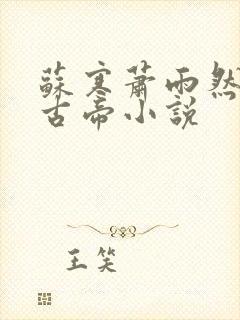 蘇寒蕭雨然
古帝小說
王笑